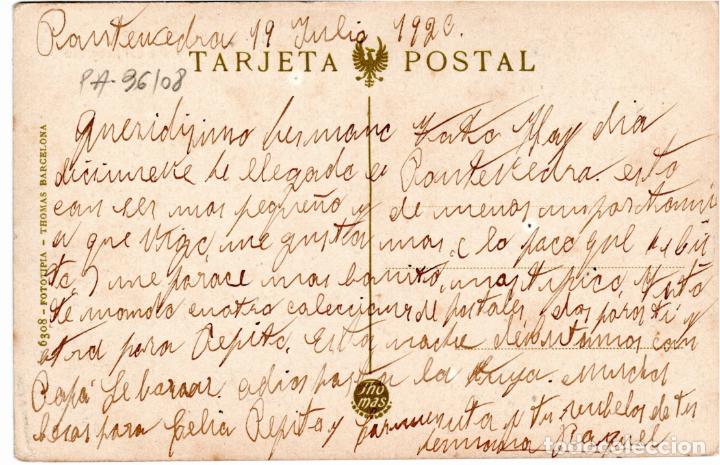 Pontevedra 19 Julio 192
TARJETA POSTAL
PA-96/08
6308 - FOTOTIPIA - THOMAS BARCELONA
Queridisimo hermano Hay dia
diecinueve he llegado a Pontevedra. esto
con ser mas pequeño y de menos importanci
a que Vigo, me gusta mas, (lo poco que he vis
to,) me parace mas bonito, mas tipico,
te mando cuatro colecciones de postales, dos para ti y
otra para Pepito. Esta noche
Papá adios hasta la tuya. Muchos
besos para Celia Pepita y Carmencita y tu de tu
hermana Raquel
THOMAS
todocoleccion